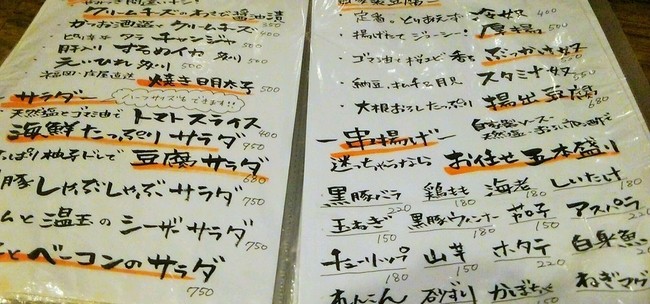 クリームチーズのわさび醤油漬
かつお酒盗 クリームチーズ
チャンジャ 400
肝入り するめいか 炙り 500
えいひれ 炙り 500
福岡・ 直送 焼き明太子 500
サラダー
ハーフサイズもできます!!
天然塩とゴマ油で トマトスライス 400
海鮮たっぷり サラダ 950
っぱり柚子ドレで 豆腐サラダ 680
豚しゃぶしゃぶ サラダ 750
ムと温玉の シーザーサラダ 750
とベーコンのサラダ 750
定番。とりあえず 冷奴 400
揚げたて ジューシー! 厚揚
ゴマ油と ぶっかけ奴
スタミナ奴
大根おろしたっぷり 揚出豆腐 680
一串揚げー
自家製ソース
迷っちゃうなら お任せ五本盛り
黒豚バラ 220
鶏もも 180
海老 180
しいたけ 180
玉ねぎ 150
黒豚ウィンナー 180
茄子 150
アスパラ 220
チューリップ 180
山芋 150
ホタテ 220
白身魚 180
れんこん
砂ずり
かぼちゃ
ねぎマグ